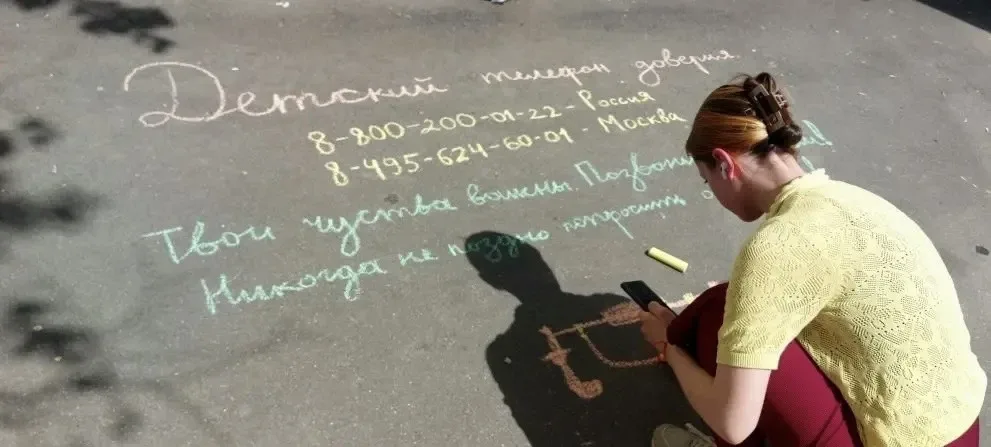 Детский телефон доверия.
8-800-200-01-22 - Россия
8-495-624-60-01 - Москва
Твои чуства важны. Позвони
Никогда не поздно попросить